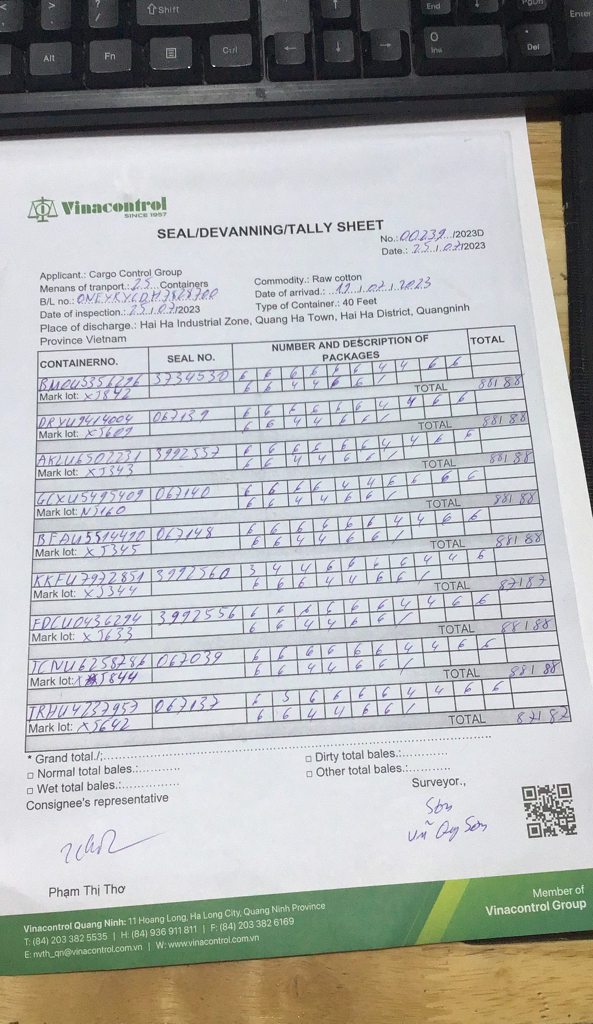 ⇧Shift
End
PgDn
Enter
Alt
Fn
Ctrl
0
Ins
Del
Vinacontrol
SINCE 1957
SEAL/DEVANNING/TALLY SHEET
No.: 00239 /2023D
Date.: 25/07/2023
Applicant.: Cargo Control Group
Menans of tranport.: 25 Containers
Commodity.: Raw cotton
B/L no.:
Date of arrivad.: /07/2023
Date of inspection.: 25/07/2023
Type of Container.: 40 Feet
Place of discharge.: Hai Ha Industrial Zone, Quang Ha Town, Hai Ha District, Quangninh
Province Vietnam
CONTAINERNO. SEAL NO. NUMBER AND DESCRIPTION OF PACKAGES TOTAL
3734530 6 6 6 6 6 6 4 4 6 6
Mark lot: XJ842 6 6 4 4 6 6 / TOTAL 88/88
DRYU9414004 067139 6 6 6 6 6 6 4 4 6 6
Mark lot: XJ609 6 6 4 4 6 6 / TOTAL 88/88
AKLU6502231 3992557 6 6 6 6 6 6 4 4 6 6
Mark lot: XJ343 6 6 4 4 6 6 / TOTAL 88/88
GCXU5495409 067140
Mark lot: NJ160 6 6 4 4 6 6 / TOTAL 88/88
067148 6 6 6 6 6 6 4 4 6 6
Mark lot: XJ345 6 6 4 4 6 6 / TOTAL 88/88
KKFU7972851 3992560 3 4 4 6 6 6 6 4 4 6
Mark lot: XJ344 6 6 4 4 6 6 / TOTAL 87/87
FDCU0436294 3992556 6 6 6 6 6 6 4 4 6 6
Mark lot: XJ633 6 6 4 4 6 6 / TOTAL 88/88
TCNU6258286 067039 6 6 6 6 6 6 4 4 6 6
Mark lot: XJ844 6 6 4 4 6 6 / TOTAL 88/88
TRHU4737957 067137 6 5 6 6 6 6 4 4 6 6
Mark lot: XJ642 6 6 4 4 6 6 / TOTAL 87/87
* Grand total./;
□ Normal total bales.:
□ Dirty total bales.:
□ Wet total bales.:
□ Other total bales.:
Consignee's representative
Surveyor.,
Sơn
Vũ Sơn
Phạm Thị Thơ
Vinacontrol Quang Ninh: 11 Hoang Long, Ha Long City, Quang Ninh Province
T: (84) 203 382 5535 | H: (84) 936 911 811 | F: (84) 203 382 6169
E: nvth_qn@vinacontrol.com.vn | W: www.vinacontrol.com.vn
Member of
Vinacontrol Group